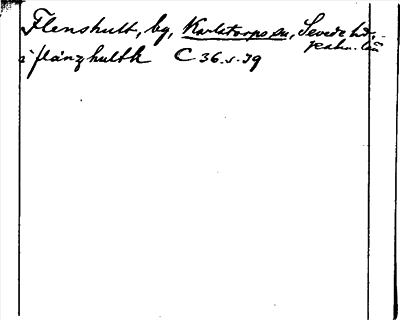 Flenshult, by, Karlstorps sn, Sevede hd,
Kalm. län
i flänzhultk C 36. s. 79